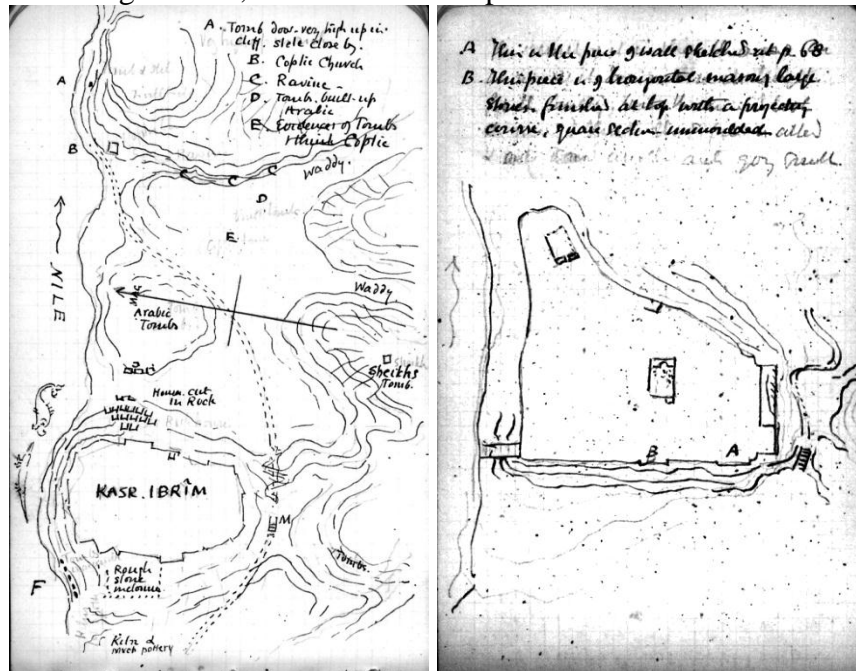 A. Tomb door very high up in
cliff. stele close by.
B. Coptic Church
C. Ravine
D. Tomb. built-up
Arabic
E. Evidences of Tombs
think Coptic
A
B
C C C
Waddy.
D
E
NILE
MAG
Waddy
Arabic
Tombs
Sheikhs
Tomb.
Houses cut
in Rock
KASR. IBRÎM
M
Tombs
F
Rough
stone
Kiln &
much pottery
A This is the piece of wall sketched at p. 68
B. This piece is of horizontal masonry large
stones finished at top with a projecting
course,
B A